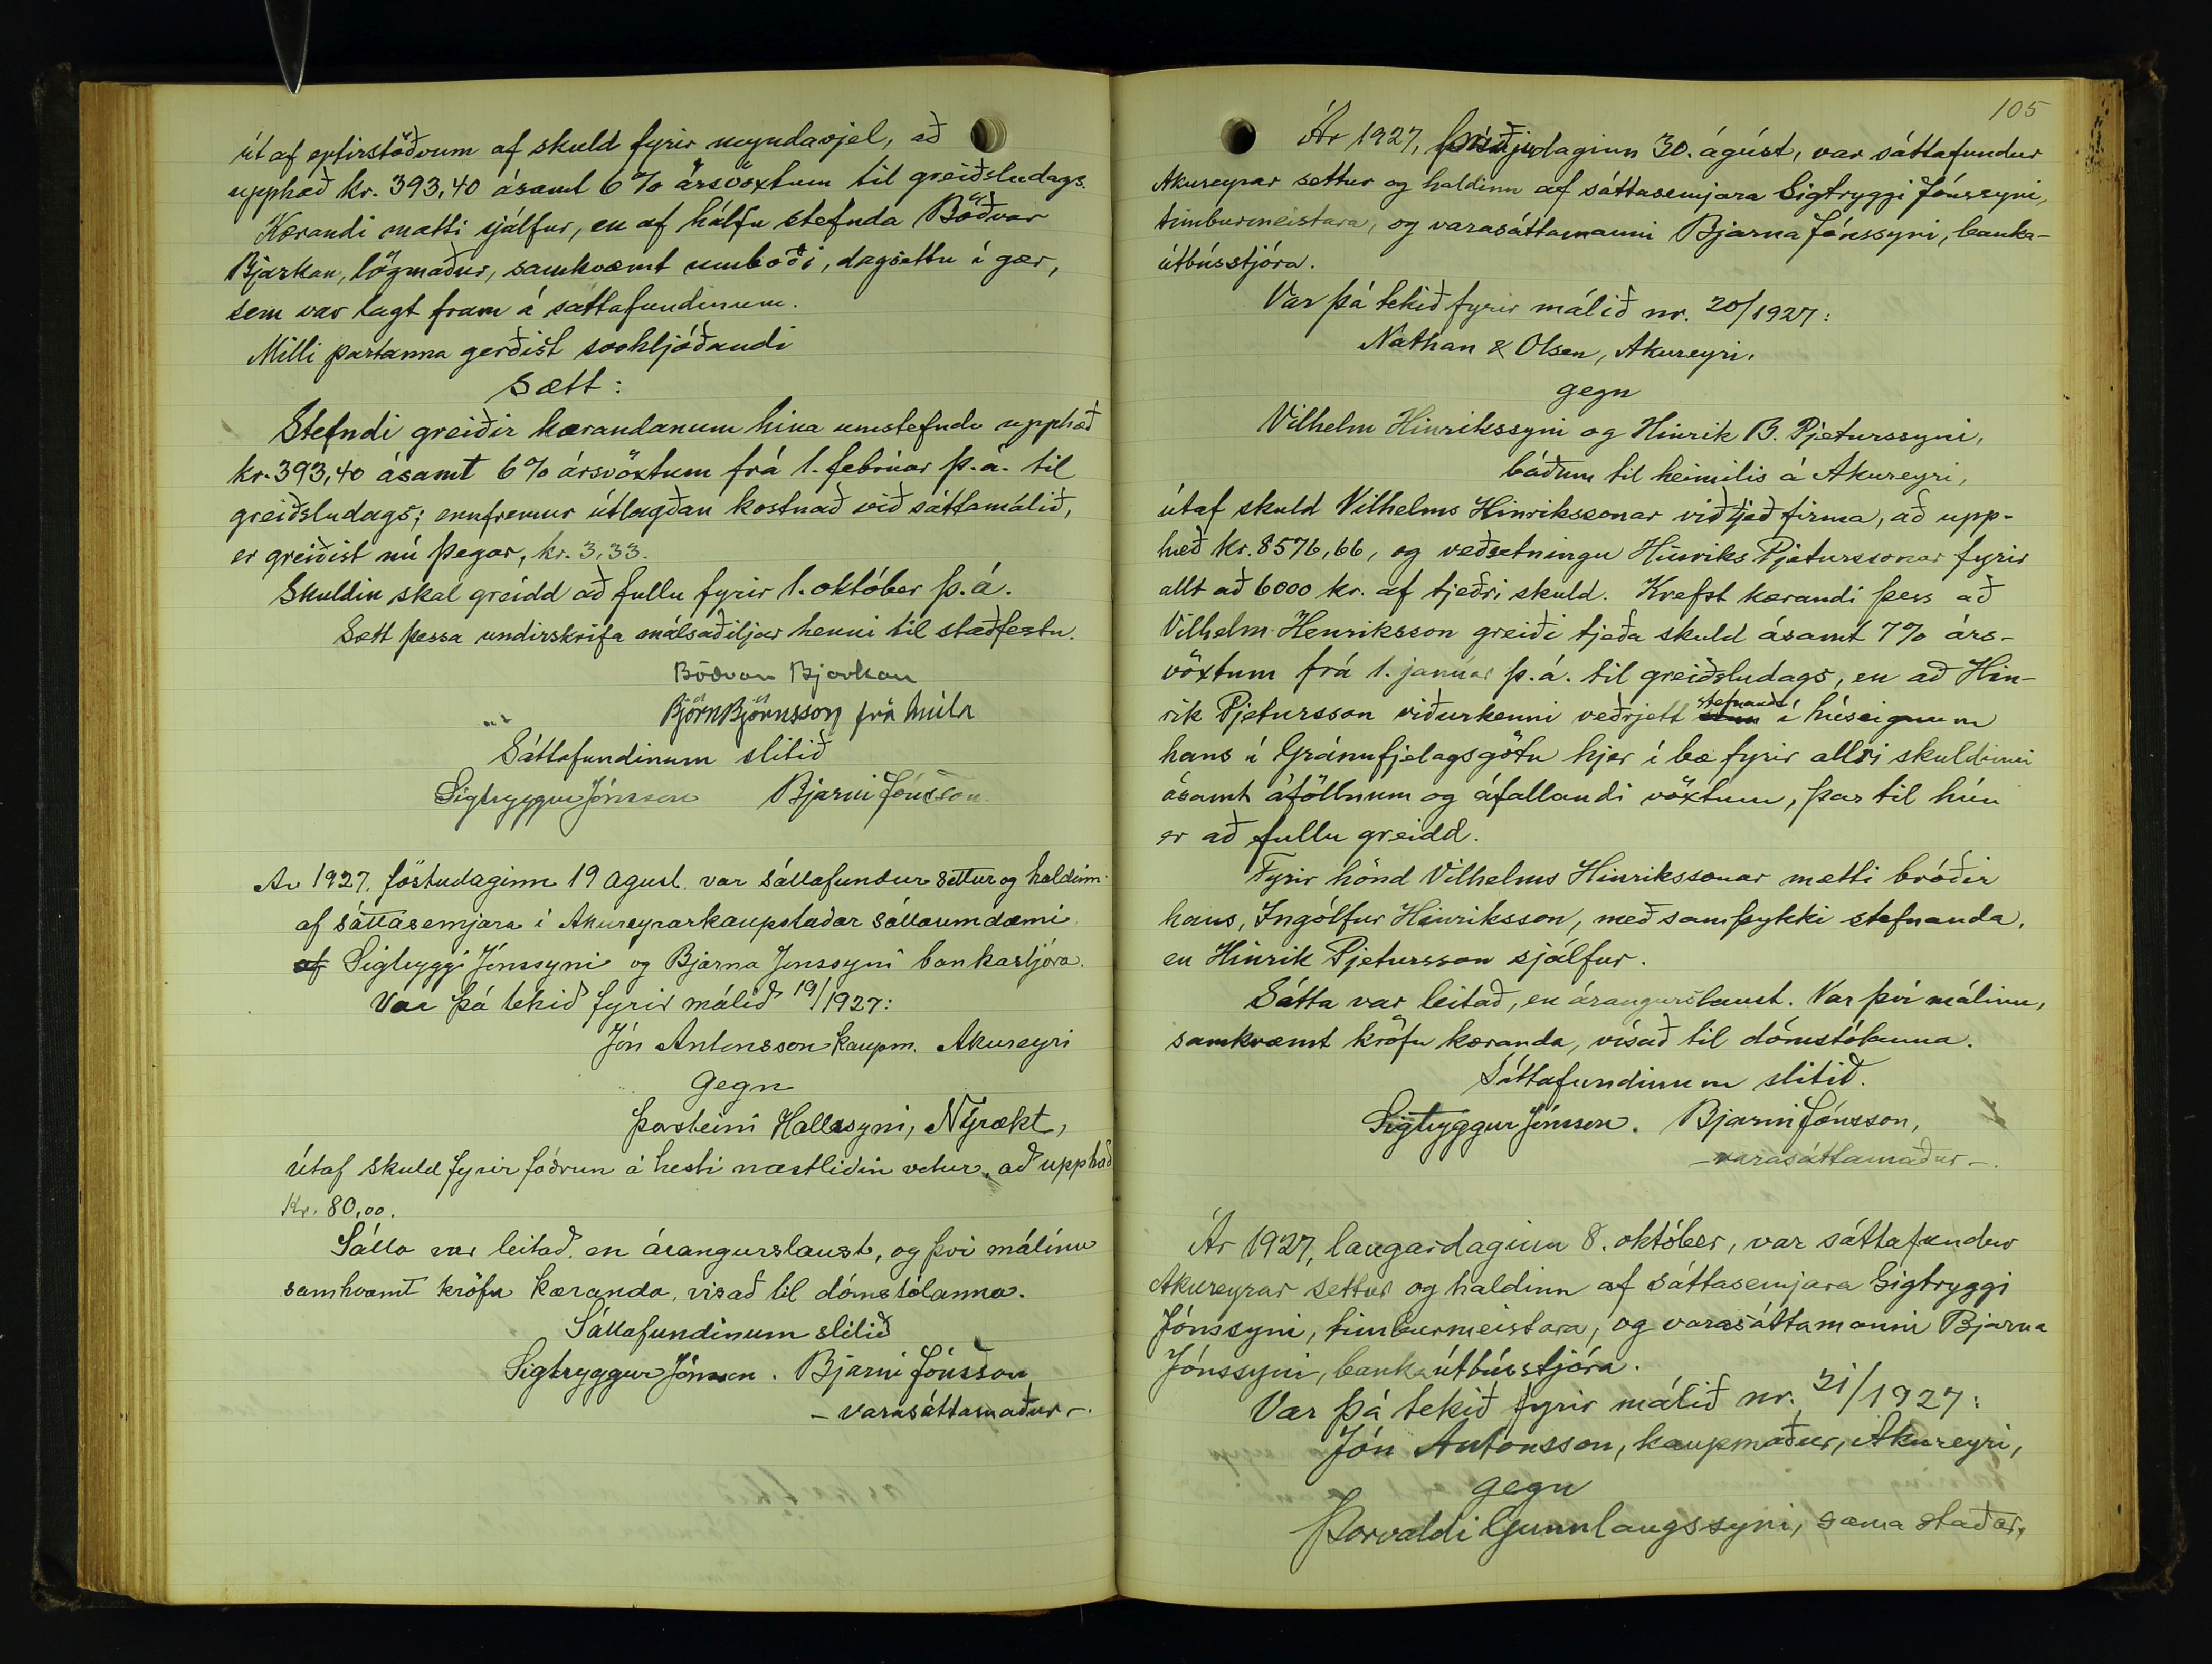 út af eptirstöðvum af skuld fyrir myndavjel, að
upphæð kr. 393,40 ásamt 6% ársvöxtum til greiðsludags.
Kærandi mætti sjálfur, en af hálfu stefnda Böðvar
Bjarkan, lögmaður, samkvæmt umboði, dagsettu í gær,
sem var lagt fram á sáttafundinum.
Milli partanna gerðist svohljóðandi
Sætt:
Stefndi greiðir kærandanum hina umstefndu upphæð
kr. 393,40 ásamt 6% ársvöxtum frá 1. febrúar þ.á. til
greiðsludags; ennfremur útlagðan kostnað við sáttamálið,
er greiðist nú þegar, kr. 3,33.
Skuldin skal greidd að fullu fyrir 1. október þ.á.
Sætt þessa undirskrifa málsaðiljar henni til staðfestu.
Böðvar Bjarkan
Björn Björnsson frá Múla
Sáttafundinum slitið
Sigtryggur Jónsson Bjarni Jónsson.
Ar 1927. föstudaginn 19 Agust. var sáttafundur settur og haldinn
af sáttasemjara i Akureyrarkaupstaðar sáttaumdæmi
af Sigtryggi Jónssyni og Bjarna Jónssyni bankastjóra.
Var þá tekið fyrir málið 19/1927:
Jón Antonsson kaupm. Akureyri
Gegn
Þorsteini Hallssyni, Nýrækt,
Útaf skuld fyrir fóðrun á hesti næstliðin vetur, að upphæð
Kr. 80,00.
Sátta var leitað, en árangurslaust, og því málinu
samkvæmt kröfu kæranda, vísað til dómstólanna.
Sáttafundinum slitið
Sigtryggur Jónsson. Bjarni Jónsson
- varasáttamaður -.
105
Ár 1927, þriðjudaginn 30. ágúst, var sáttafundur
Akureyrar settur og haldinn af sáttasemjara Sigtryggi Jónssyni,
timburmeistara, og varasáttamanni Bjarna Jónssyni, banka-
útbússtjóra.
Var þá tekið fyrir málið nr. 20/1927:
Nathan & Olsen, Akureyri,
gegn
Vilhelm Hinrikssyni og Hinrik B. Pjeturssyni,
báðum til heimilis á Akureyri,
útaf skuld Vilhelms Hinrikssonar við tjeð firma, að upp-
hæð kr. 8576,66, og veðsetningu Hinriks Pjeturssonar fyrir
allt að 6000 kr. af tjeðri skuld. Krefst kærandi þess að
Vilhelm Henriksson greiði tjeða skuld ásamt 7% árs-
vöxtum frá 1. janúar þ.á. til greiðsludags, en að Hin-
rik Pjetursson viðurkenni veðrjett stefnanda í húseignum
hans í Gránufjelagsgötu hjer í bæ fyrir allri skuldinni
ásamt áföllnum og áfallandi vöxtum, þar til hún
er að fullu greidd.
Fyrir hönd Vilhelms Hinrikssonar mætti bróðir
hans, Ingólfur Hinriksson, með samþykki stefnanda,
en Hinrik Pjetursson sjálfur.
Sátta var leitað, en árangurslaust. Var því málinu,
samkvæmt kröfu kæranda, vísað til dómstólanna.
Sáttafundinum slitið.
Sigtryggur Jónsson. Bjarni Jónsson,
- varasáttamaður -.
Ár 1927, laugardaginn 8. október, var sáttafundur
Akureyrar settur og haldinn af sáttasemjara Sigtryggi
Jónssyni, timburmeistara, og varasáttamanni Bjarna
Jónssyni, bankaútbússtjóra.
Var þá tekið fyrir málið nr. 21/1927:
Jón Antonsson, kaupmaður, Akureyri,
gegn
Þorvaldi Gunnlaugssyni, sama staðar,